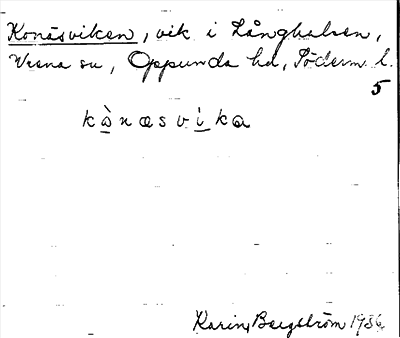 Konäsviken, vik i Långhalsen,
Vrena sn, Oppunda hd, Söderm. l.
5
kànæsvìka
Karin Bergström 1936